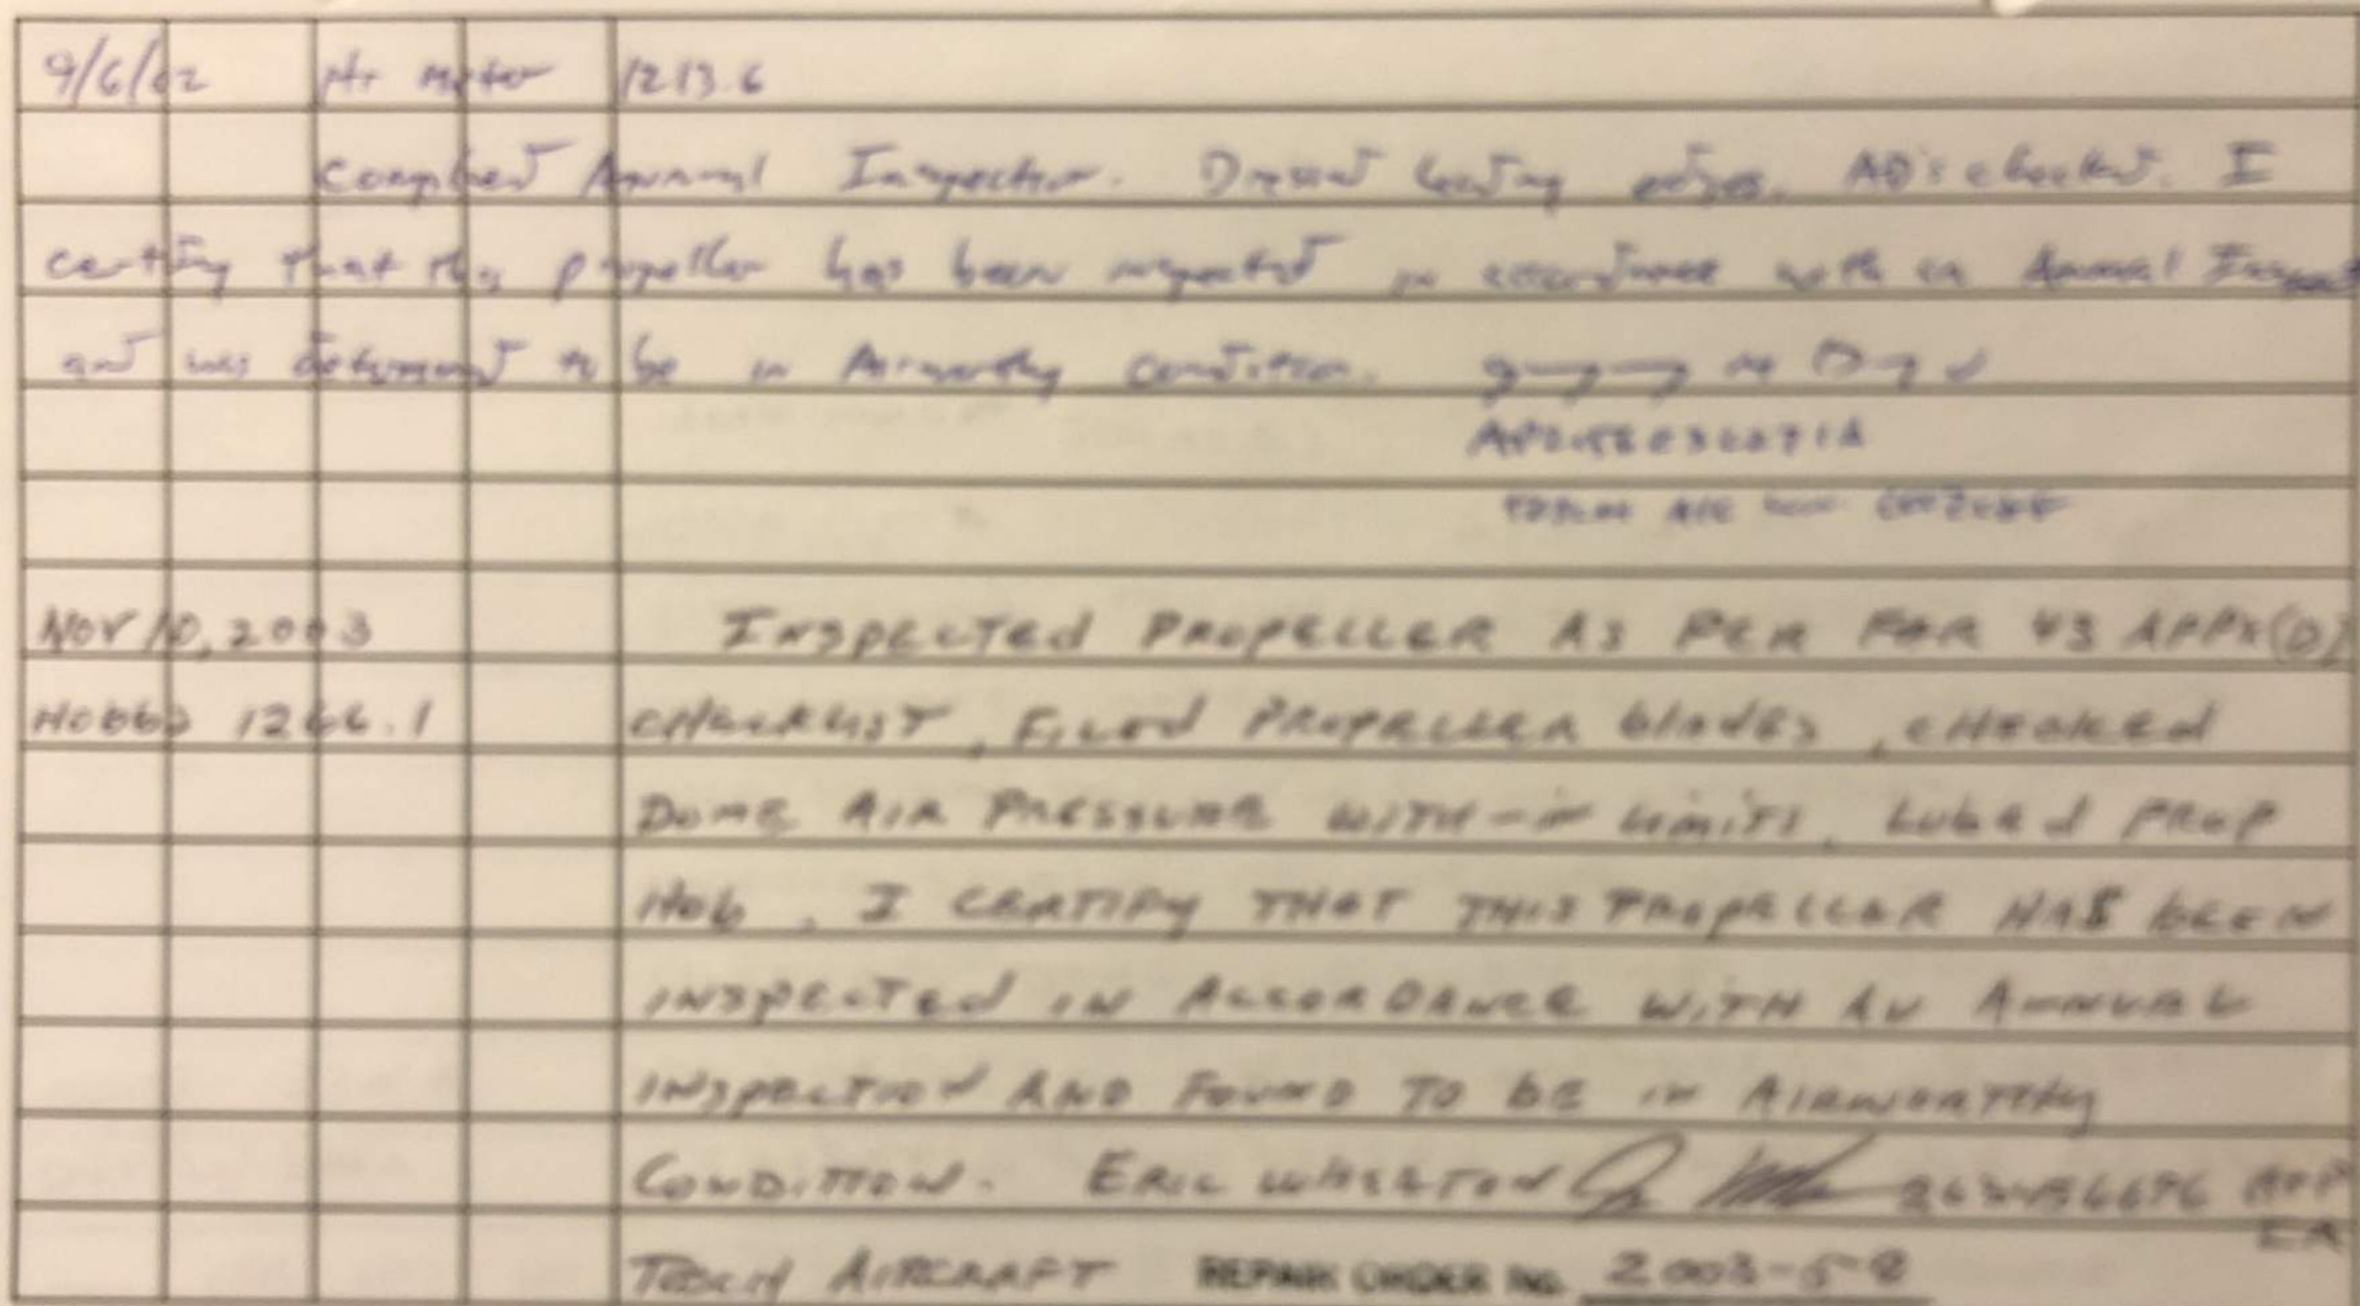 9/6/02 Hr Meter 1213.6
Complied Annual Inspection. Dressed leading edges. AD's checked. I
certify that this propeller has been inspected in accordance with an Annual Inspect
and was determined to be in Airworthy condition.
NOV 10, 2003 INSPECTED PROPELLER AS PER FAR 43 APPX (D)
HOBBS 1266.1 CHECKLIST, FILED PROPELLER blades, CHECKED
DOME AIR PRESSURE WITH-in limits, Lubed PROP
Hub, I CERTIFY THAT THIS PROPELLER HAS BEEN
INSPECTED IN ACCORDANCE WITH AN ANNUAL
INSPECTION AND FOUND TO BE in AIRWORTHY
CONDITION. ERIC WHEETON A&P
IA
AIRCRAFT REPAIR ORDER NO. 2003-58